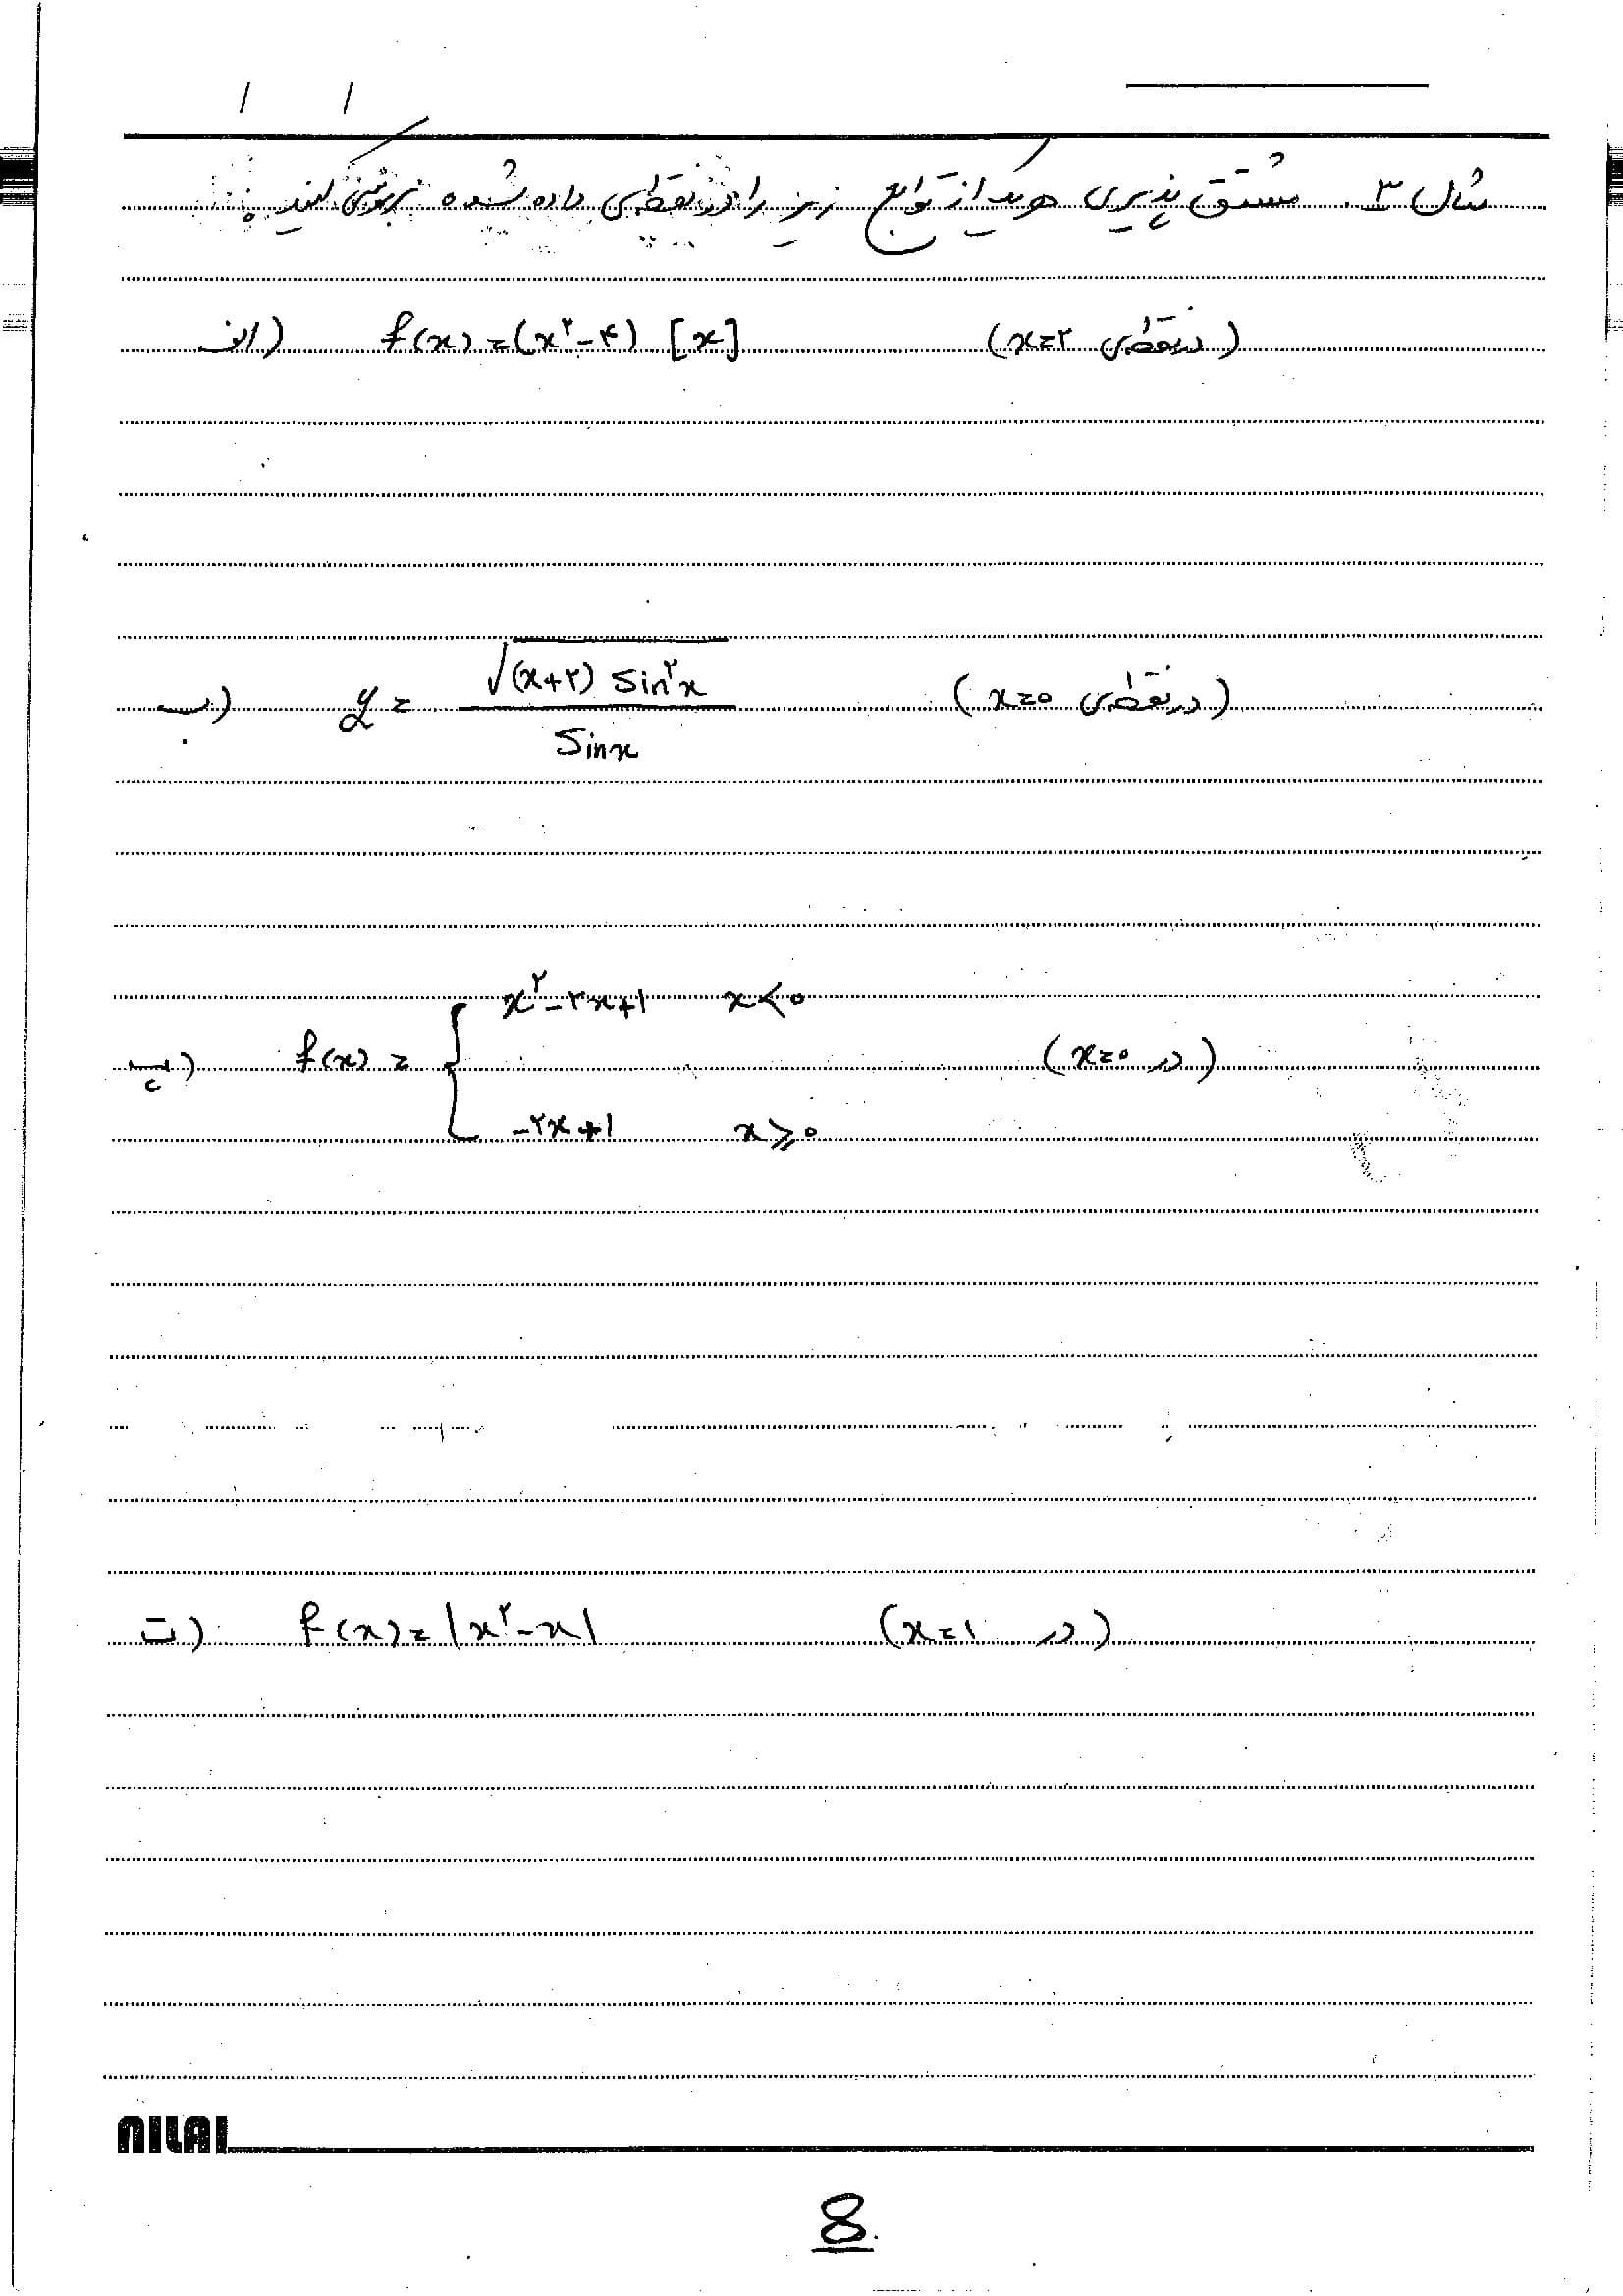 مثال ۳. مشتق پذیری هریک از توابع زیر را در نقطه‌ی داده شده بررسی کنید:
الف) f(x) = (x^۲ - ۴) [x] (در نقطه‌ی x=۲)
ب) y = √((x+۲) Sin^۲ x) / Sin x (در نقطه‌ی x=۰)
پ) f(x) = { x^۲ - ۲x + ۱ x < ۰
-۲x + ۱ x ⩾ ۰ (در x=۰)
ت) f(x) = |x^۲ - x| (در x=۱)
NILAI
8